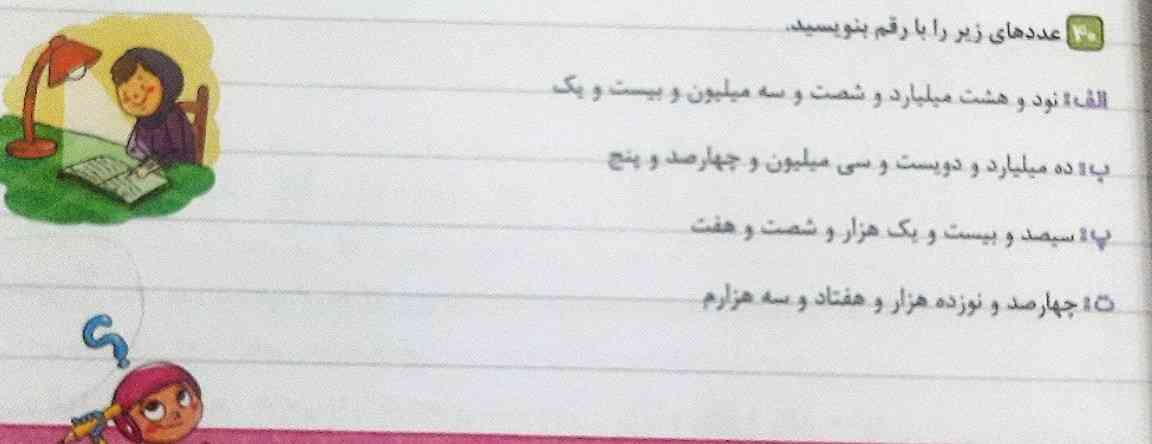 ۴۰ عددهای زیر را با رقم بنویسید.
الف: نود و هشت میلیارد و شصت و سه میلیون و بیست و یک
ب: ده میلیارد و دویست و سی میلیون و چهارصد و پنج
پ: سیصد و بیست و یک هزار و شصت و هفت
ت: چهارصد و نوزده هزار و هفتاد و سه هزارم
؟